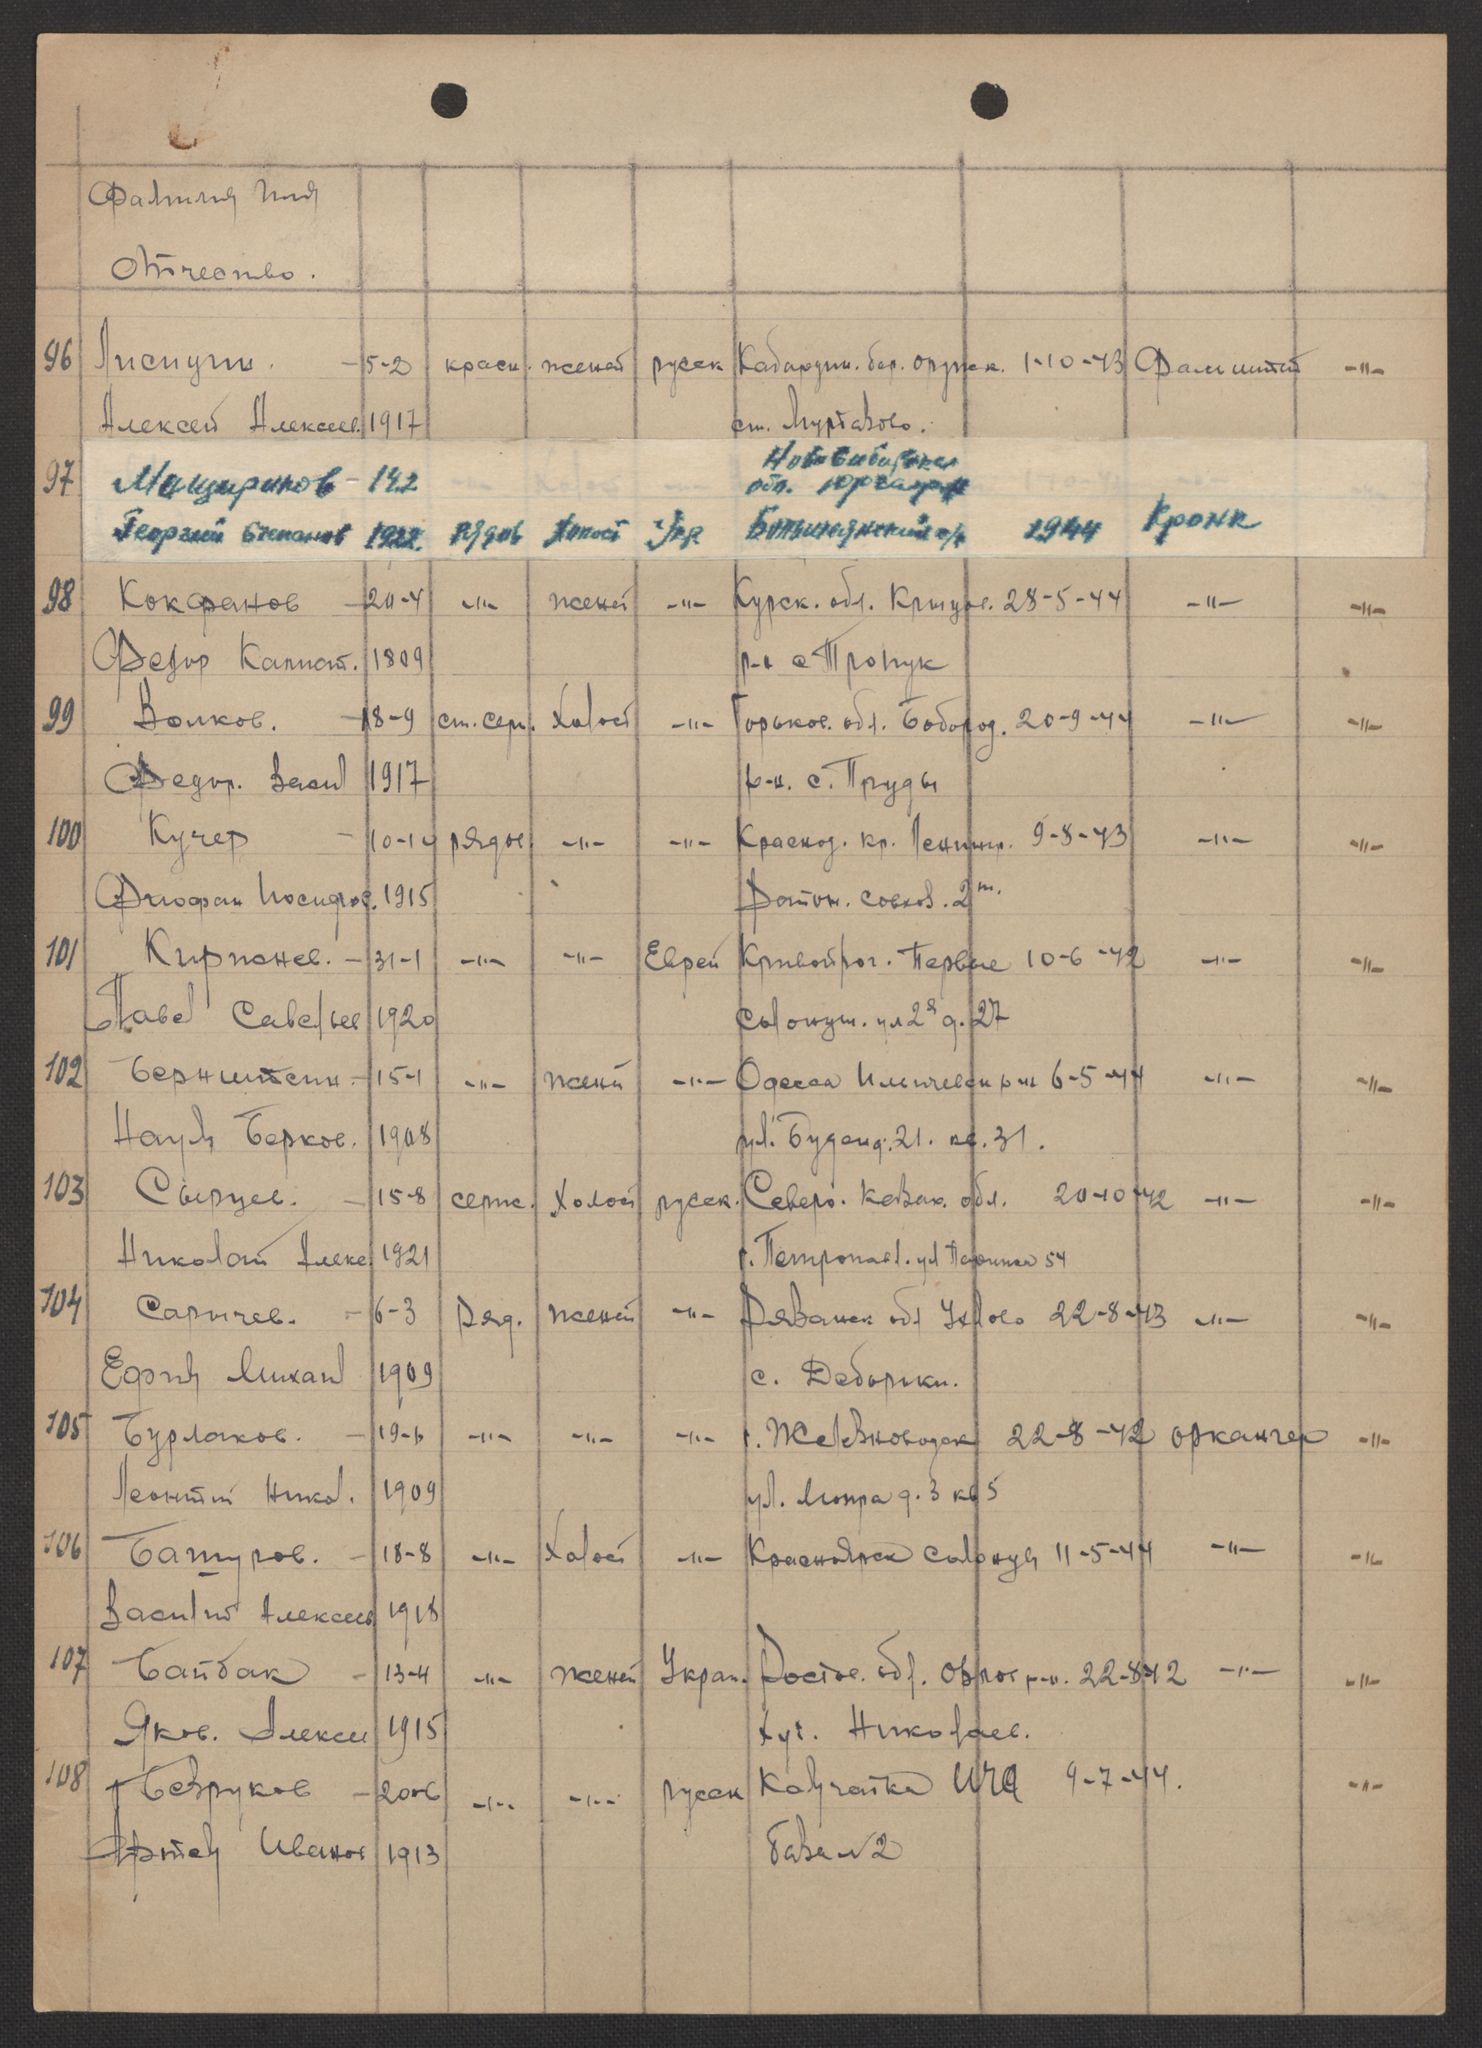 Фамилия Имя
Отчество.
96 Писнучи. -5-2 красн. женат русск Кабардин. бал. окруж. 1-10-43 -"-
Алексей Алексеев. 1917 ст. Муртазово.
97 Мащиринов - 14.2 Новосибирская обл.
Георгий Степанов 1922. рядов Холост Укр 1944 Кронк
98 Кокфанов -20-4 -"- женат -"- Курск. обл. Кривцов. 28-5-44 -"- -"-
Федор Капит. 1809 р-н с
99 Волков. -18-9 ст. серж. Холост -"- Горьков. обл. Богород. 20-9-44 -"- -"-
Федор. Васил 1917 р-н. с. Пруды
100 Кучер - 10-10 рядов. -"- -"- Краснод. кр. Ленингр. 9-8-43 -"- -"-
Феофан Иосифов. 1915 совхоз. 2
101 Кирпонев. - 31-1 -"- -"- Еврей Кривойрог. Первые 10-6-42 -"- -"-
Павел Савельев 1920 ул 2я д. 27
102 Бернштейн. -15-1 -"- женат -"- Одесса Ильичевск р-н 6-5-44 -"- -"-
Наум Берков. 1908 ул. Буден д. 21. кв. 31.
103 Сырцев. -15-8 серж. Холост русск. Северо. Казах. обл. 20-10-42 -"- -"-
Николай Алекс 1921 г. Петропавл. ул 54
104 Сарычев. - 6-3 Ряд. женат -"- Рязанск обл Ухолов 22-8-43 -"- -"-
Ефим Михаил 1909 с. Деборки.
105 Бурлаков. -19-6 -"- -"- -"- г. Железноводск 22-8-42 арханген -"-
Леонтий Никол. 1909 ул. Мопра д. 3 кв 5
106 Батуров. - 18-8 -"- Холост -"- Красноярск 11-5-44 -"- -"-
Василий Алексеев 1918
107 Байбак - 13-4 -"- женат Украи. Ростов. обл. р-н. 22-8-42 -"- -"-
Яков. Алексе 1915 хут. Николаев.
108 Безруков -20-6 -"- -"- русск Камчатка 9-7-44. -"-
Артем Иванов 1913 база №2